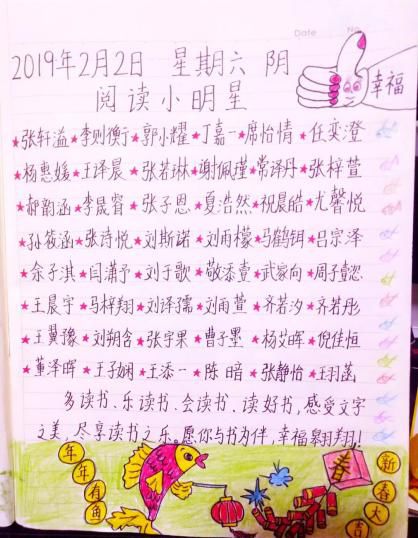 Date No.
2019年2月2日 星期六 阴
阅读小明星
幸福
★张轩溢★李则衡★郭小耀★丁嘉一★席怡情★任奕澄
★杨惠媛★王译晨★张若琳★谢佩瑾★常译丹★张梓萱
★胡韵涵★李晟睿★张子恩★夏浩然★祝晨皓★尤馨悦
★孙筱涵★张诗悦★刘斯诺★刘雨檬★马鹤铒★吕宗泽
★余子淇★闫潇予★刘于歌★敬黍壹★武家向★周子壹
★王晨宇★马梓翔★刘译孺★刘雨萱★齐若汐★齐若彤
★王翼豫★刘朔含★张宇果★曹子墨★杨艾晖★倪佳恒
★董泽晖★王子娴★王添一★陈暗★张静怡★王羽菡
多读书、乐读书、会读书、读好书,感受文字
之美,尽享读书之乐。愿你与书为伴,幸福翱翔!
年年有鱼
春
新春大吉